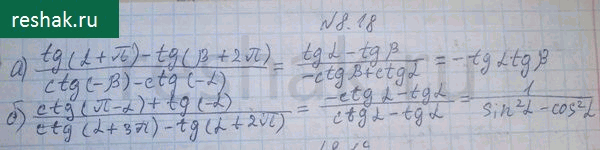 reshak.ru
№8.18
а) (tg(α+π)-tg(β+2π))/(ctg(-β)-ctg(-α)) = (tgα-tgβ)/(-ctgβ+ctgα) = -tgαtgβ
б) (ctg(π-α)+tg(-α))/(ctg(α+3π)-tg(α+2π)) = (-ctgα-tgα)/(ctgα-tgα) = 1/(sin²α-cos²α)